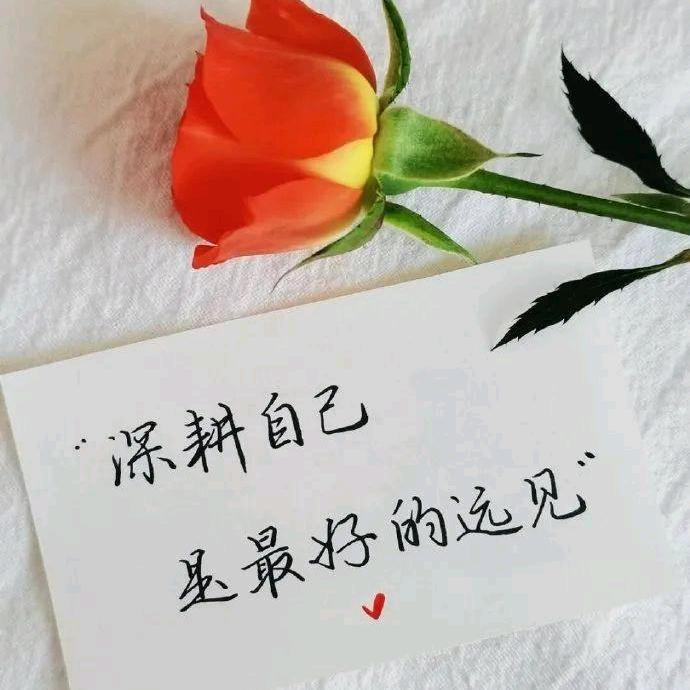 “深耕自己
是最好的远见”